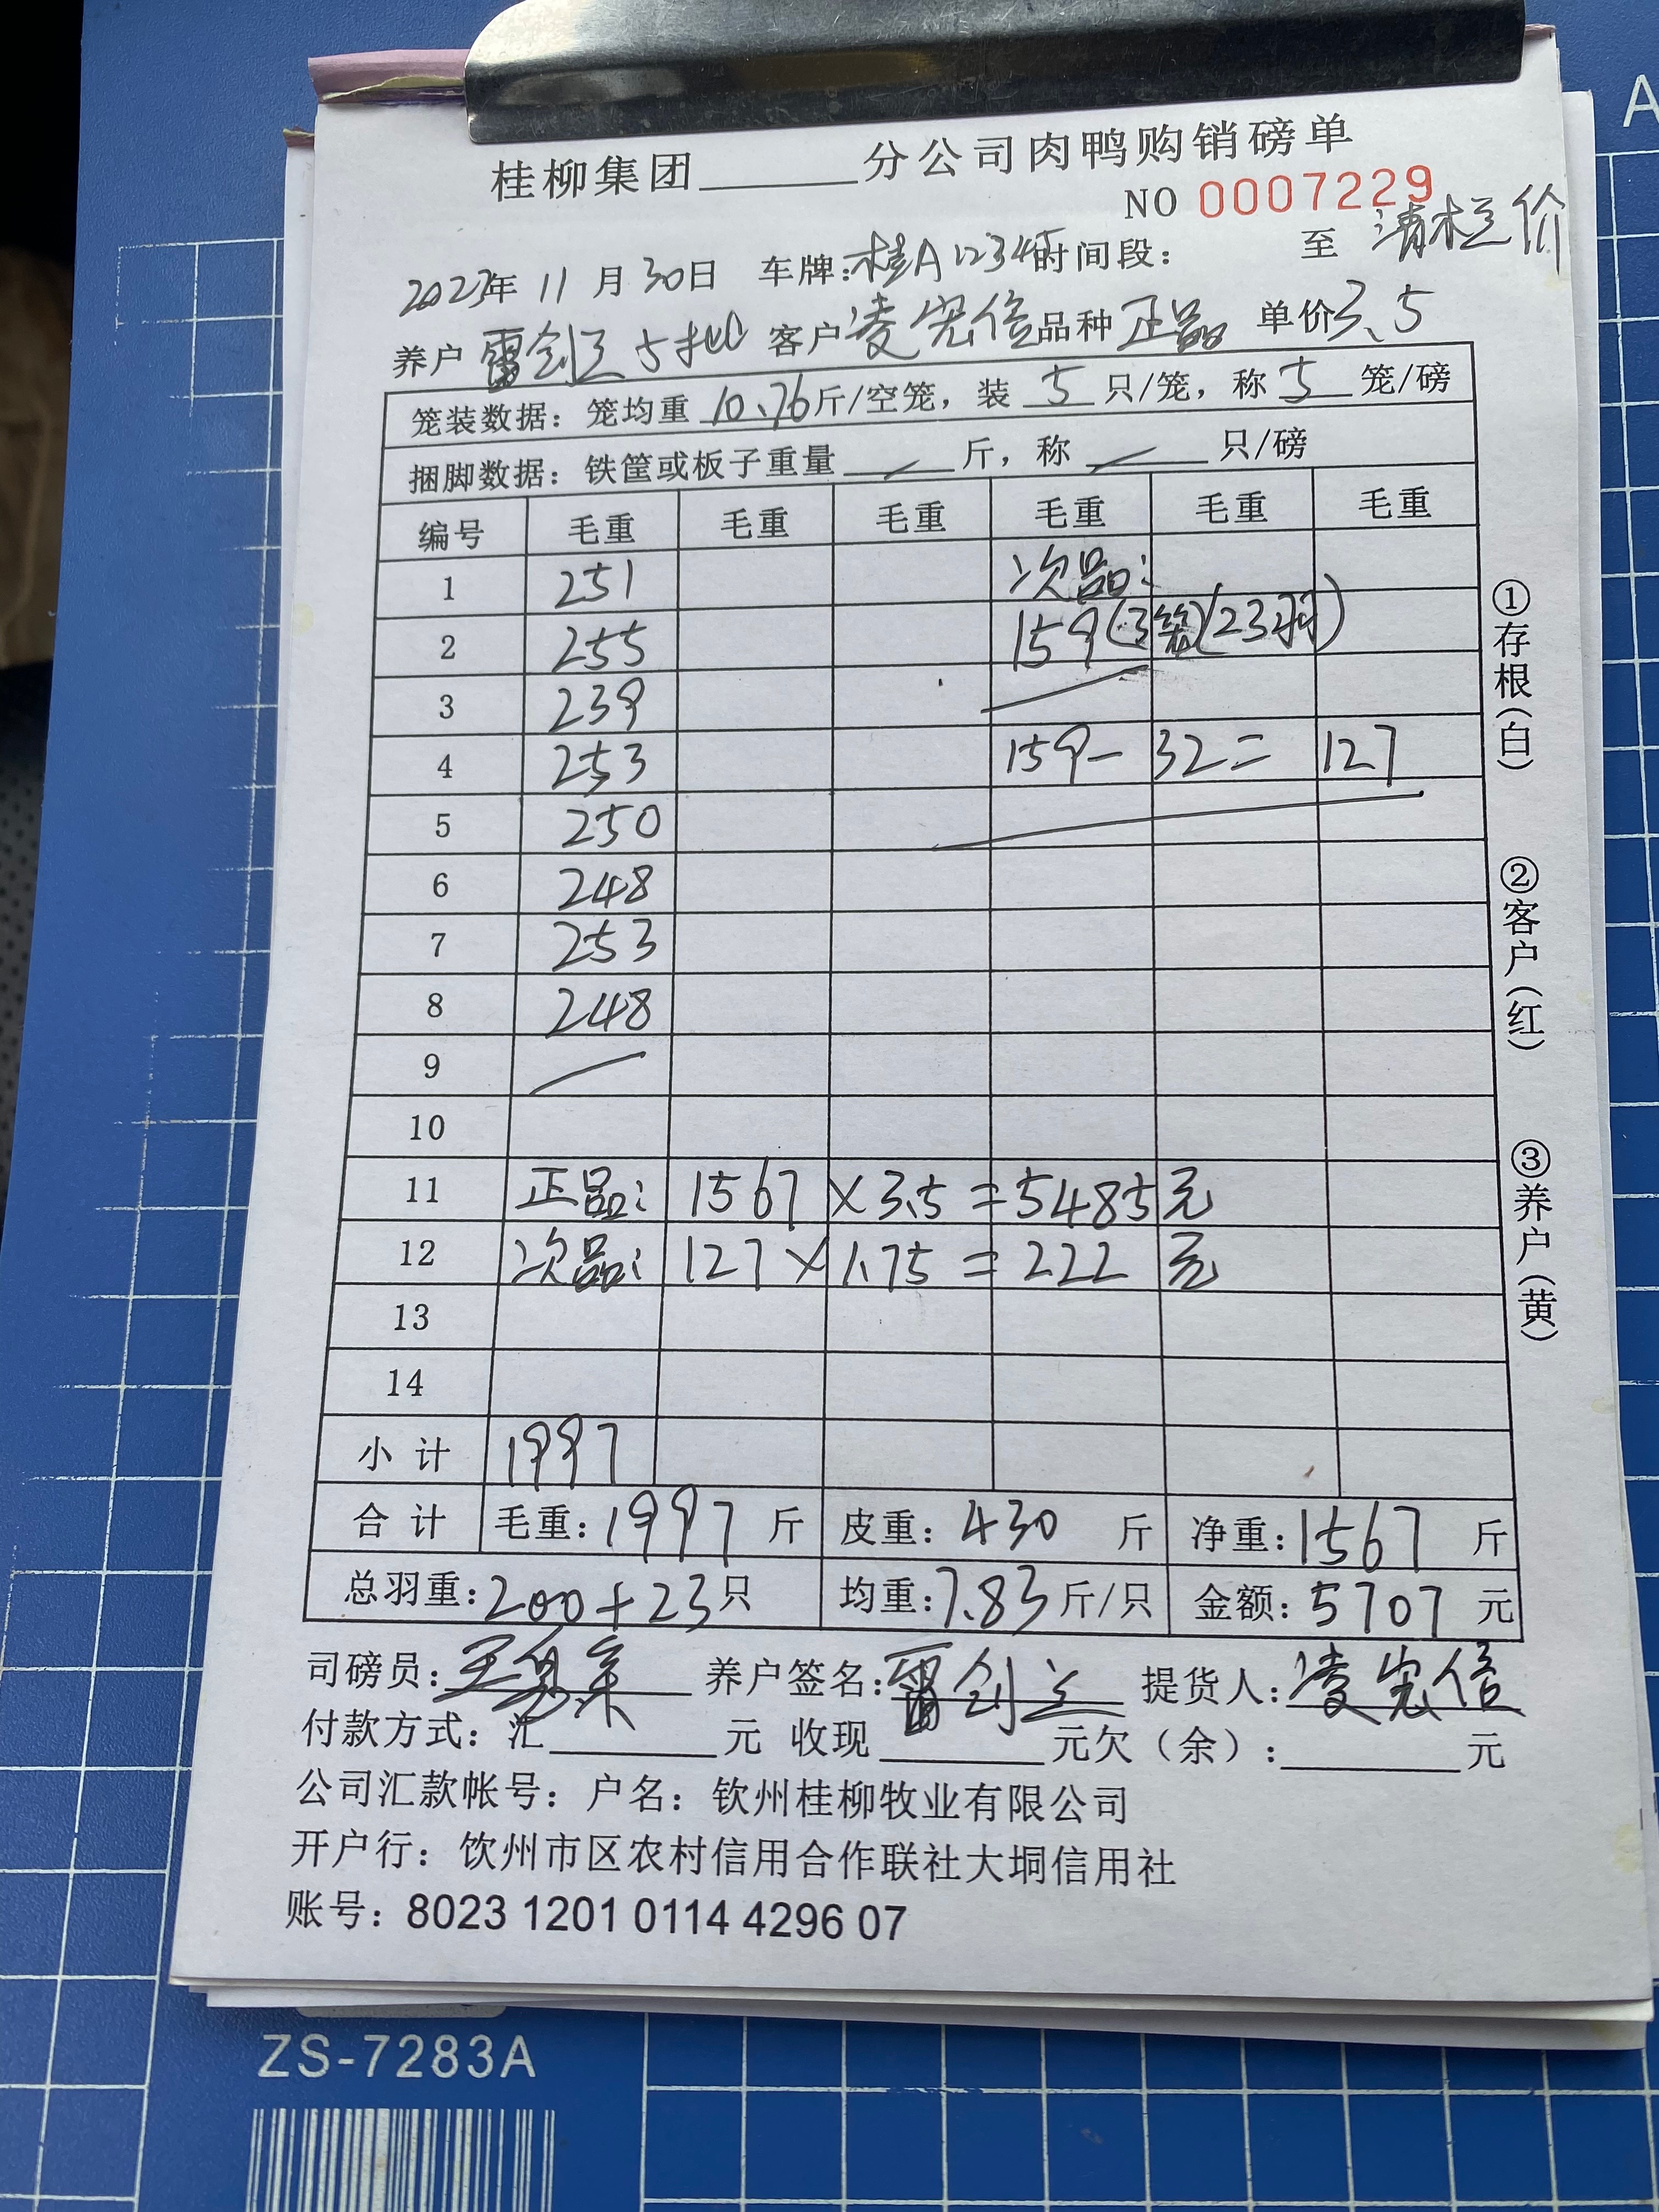 桂柳集团______分公司肉鸭购销磅单
NO 0007229
清栏价
2023年 11 月 30日 车牌:桂A12345时间段: 至
养户 雷剑立 5批 客户 凌宪信 品种 正品 单价3.5
笼装数据：笼均重 10.76斤/空笼，装 5 只/笼，称 5 笼/磅
捆脚数据：铁筐或板子重量 / 斤，称 / 只/磅
编号 毛重 毛重 毛重 毛重 毛重 毛重
1 251 次品:
2 255 159(3笼)(23羽)
3 239
4 253 159- 32= 127
5 250
6 248
7 253
8 248
9
10
11 正品: 1567 × 3.5 = 5485元
12 次品: 127 × 1.75 = 222 元
13
14
小 计 1997
合 计 毛重: 1997 斤 皮重: 430 斤 净重: 1567 斤
总羽重: 200+23只 均重: 7.83斤/只 金额: 5707 元
司磅员: 养户签名: 雷剑立 提货人: 凌宪信
付款方式：汇______元 收现______元欠（余）:______元
公司汇款帐号：户名：钦州桂柳牧业有限公司
开户行：饮州市区农村信用合作联社大垌信用社
账号：8023 1201 0114 4296 07
①存根(白)
②客户(红)
③养户(黄)
ZS-7283A
A